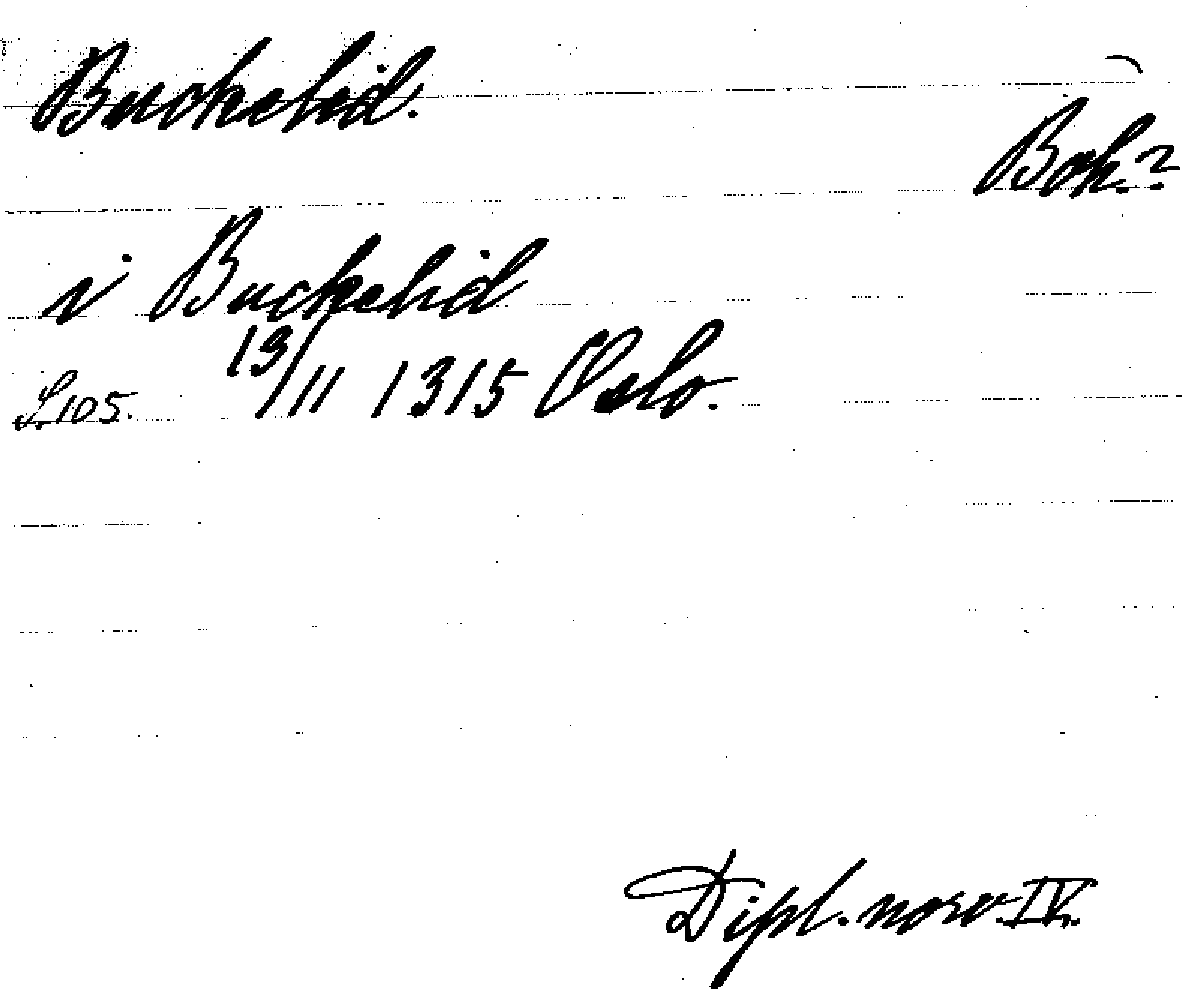 Buckelid.
Boh.?
i Buckelid
S. 105. 13/11 1315 Oslo.
Dipl. norv. IV.